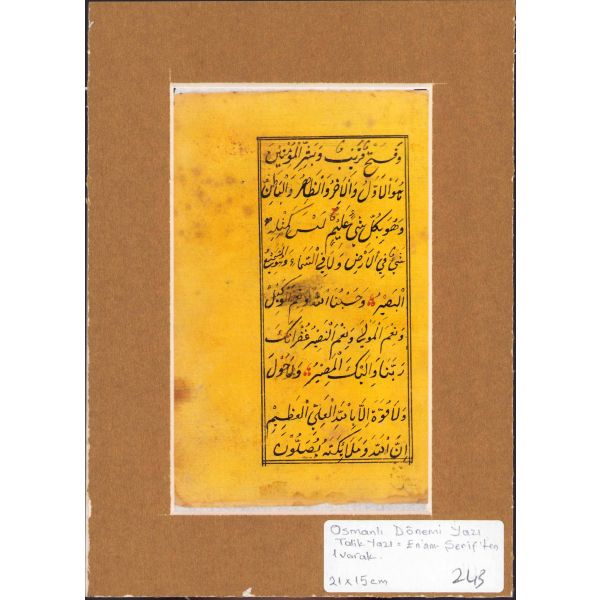 وَفَتْحٌ قَرِيبٌ وَبَشِّرِ الْمُؤْمِنِينَ
هُوَ الْاَوَّلُ وَالْاٰخِرُ وَالظَّاهِرُ وَالْبَاطِنُ
وَهُوَ بِكُلِّ شَيْءٍ عَلِيمٌ لَيْسَ كَمِثْلِهِ
شَيْءٌ فِي الْاَرْضِ وَلَا فِي السَّمَاءِ وَهُوَ السَّمِيعُ
الْبَصِيرُ وَحَسْبُنَا اللّٰهُ وَنِعْمَ الْوَكِيلُ
وَنِعْمَ الْمَوْلٰي وَنِعْمَ النَّصِيرُ غُفْرَانَكَ
رَبَّنَا وَاِلَيْكَ الْمَصِيرُ وَلَا حَوْلَ
وَلَا قُوَّةَ اِلَّا بِاللّٰهِ الْعَلِيِّ الْعَظِيمِ
اِنَّ اللّٰهَ وَمَلٰئِكَتَهُ يُصَلُّونَ
Osmanlı Dönemi Yazı
Talik Yazı = En'am Şerif'ten
1 varak.
21 x 15 cm
243